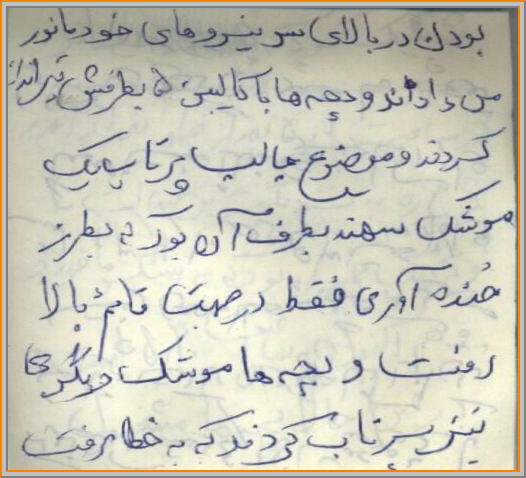 بودن در بالای سر نیروهای خود مانور
می‌دادند و بچه ها با کالیبر ۵۰ بطرفش تیراندازی
کردند و موضوع جالب پرتاب یک
موشک سهند بطرف آن بود که بطرز
خنده آوری فقط در جهت قائم بالا
رفت و بچه ها موشک دیگری
نیز پرتاب کردند که به خطا رفت